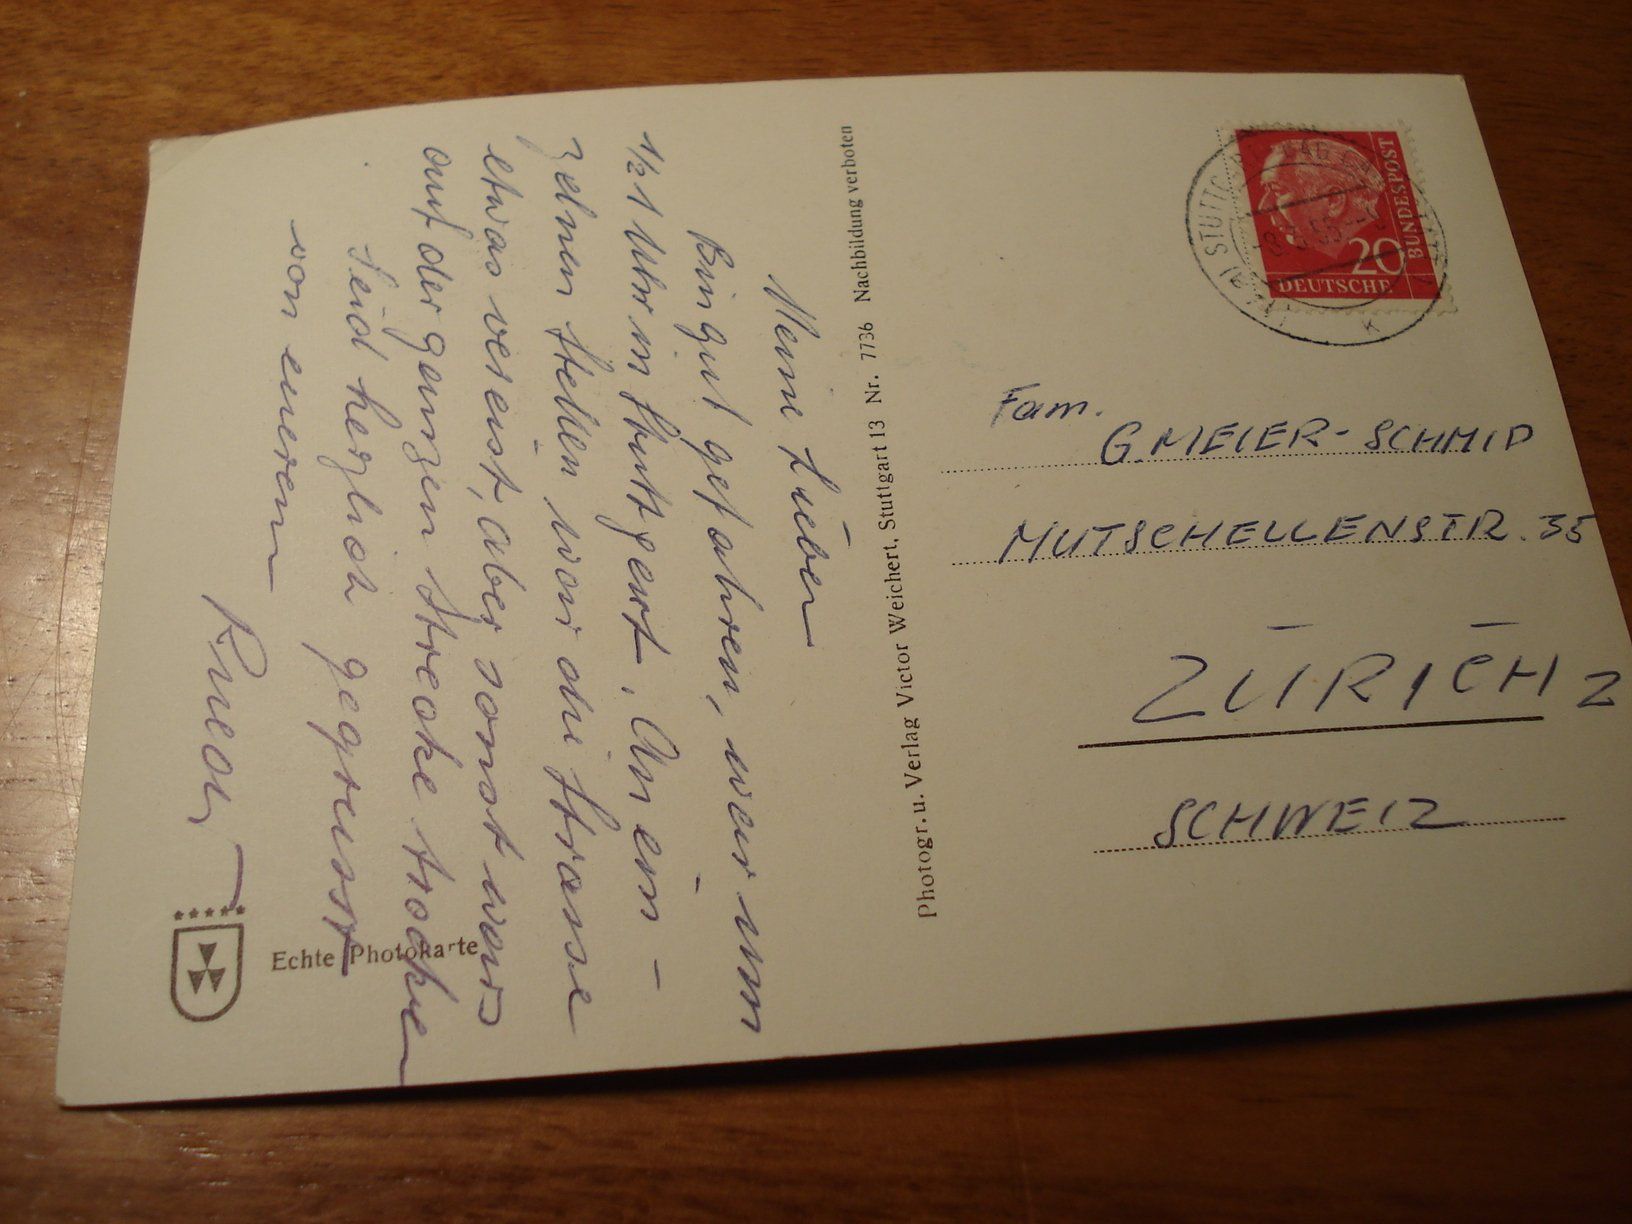 Meine Lieben
Bin gut gefahren, war um
1/2 1 Uhr in Stuttgart. An ein-
zelnen Stellen war die Strasse
etwas vereist, aber sonst wars
auf der ganzen Strecke trocken
Seid herzlich gegrüsst
von eurem
Echte Photokarte
Photogr. u. Verlag Victor Weichert, Stuttgart 13 Nr. 7736 Nachbildung verboten
20
DEUTSCHE
BUNDESPOST
STUTTG
Fam.
G. MEIER-SCHMID
MUTSCHELLENSTR. 35
ZÜRICH 2
SCHWEIZ